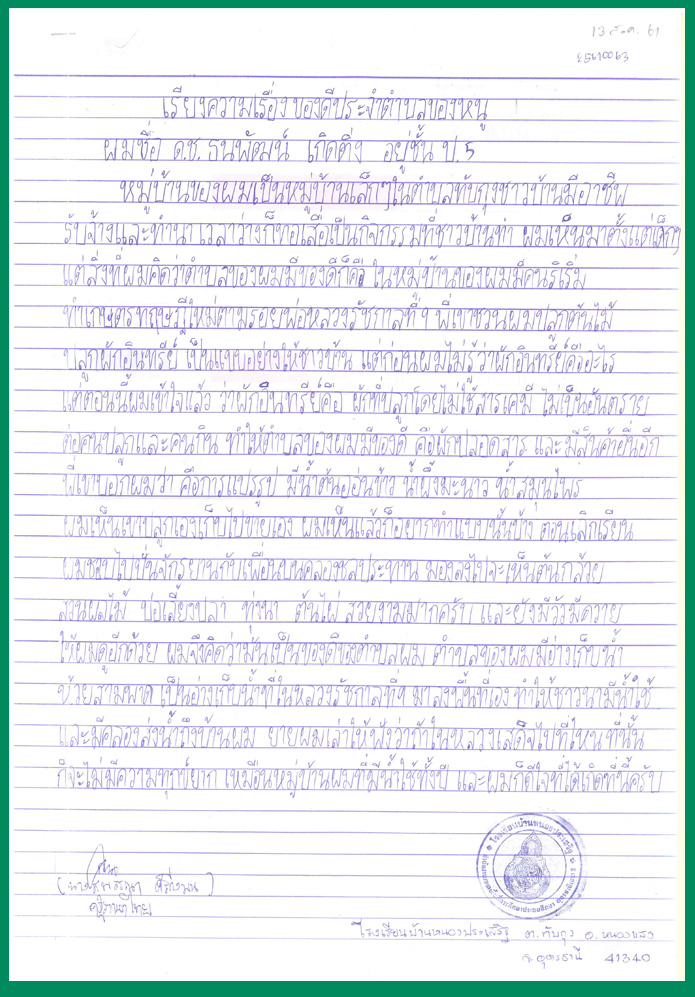 13 ส.ค. 61
เรียงความเรื่อง ของดีประจำตำบลของหนู
ผมชื่อ ด.ช. ธนพัฒน์ เกิดติ่ง อยู่ชั้น ป.5
หมู่บ้านของผมเป็นหมู่บ้านเล็กๆในตำบลทับกุงชาวบ้านมีอาชีพ
รับจ้างและทำนา เวลาว่างก็ทอเสื่อเป็นกิจกรรมที่ชาวบ้านทำ ผมเห็นมาตั้งแต่เล็กๆ
แต่สิ่งที่ผมคิดว่าตำบลของผมมีของดีก็คือ ในหมู่บ้านของผมมีคนริเริ่ม
ทำเกษตรทฤษฎีใหม่ตามรอยพ่อหลวงรัชกาลที่ ๙ พี่เขาชวนผมปลูกต้นไม้
ปลูกผักอินทรีย์ เป็นแบบอย่างให้ชาวบ้าน แต่ก่อนผมไม่รู้ว่าผักอินทรีย์คืออะไร
แต่ตอนนี้ผมเข้าใจแล้ว ว่าผักอินทรีย์คือ ผักที่ปลูกโดยไม่ใช้สารเคมี ไม่เป็นอันตราย
ต่อคนปลูกและคนกิน ทำให้ตำบลของผมมีของดี คือผักปลอดสาร และมีสินค้าอื่นอีก
พี่เขาบอกผมว่า คือการแปรรูป มีน้ำต้นอ่อนข้าว น้ำผึ้งมะนาว น้ำสมุนไพร
ผมเห็นเขาปลูกเองเก็บไปขายเอง ผมเห็นแล้วก็อยากทำแบบนั้นบ้าง ตอนเลิกเรียน
ผมชอบไปปั่นจักรยานกับเพื่อนบนคลองชลประทาน มองลงไปจะเห็นต้นกล้วย
สวนผลไม้ บ่อเลี้ยงปลา ทุ่งนา ต้นไผ่ สวยงามมากครับ และยังมีวัวมีควาย
ให้ผมดูอีกด้วย ผมจึงคิดว่ามันเป็นของดีของตำบลผม ตำบลของผมมีอ่างเก็บน้ำ
ห้วยสามพาด เป็นอ่างเก็บน้ำที่ในหลวงรัชกาลที่๙ มาลงพื้นที่เอง ทำให้ชาวนามีน้ำใช้
และมีคลองส่งน้ำถึงบ้านผม ยายผมเล่าให้ฟังว่าถ้าในหลวงเสด็จไปที่ไหน ที่นั้น
ก็จะไม่มีความทุกข์ยาก เหมือนหมู่บ้านผมที่มีน้ำใช้ทั้งปี และผมก็ดีใจที่ได้เกิดที่นี้ครับ
ครูภาษาไทย
โรงเรียนบ้านหนองประเสริฐ ต.ทับกุง อ.หนองแสง
จ.อุดรธานี 41340